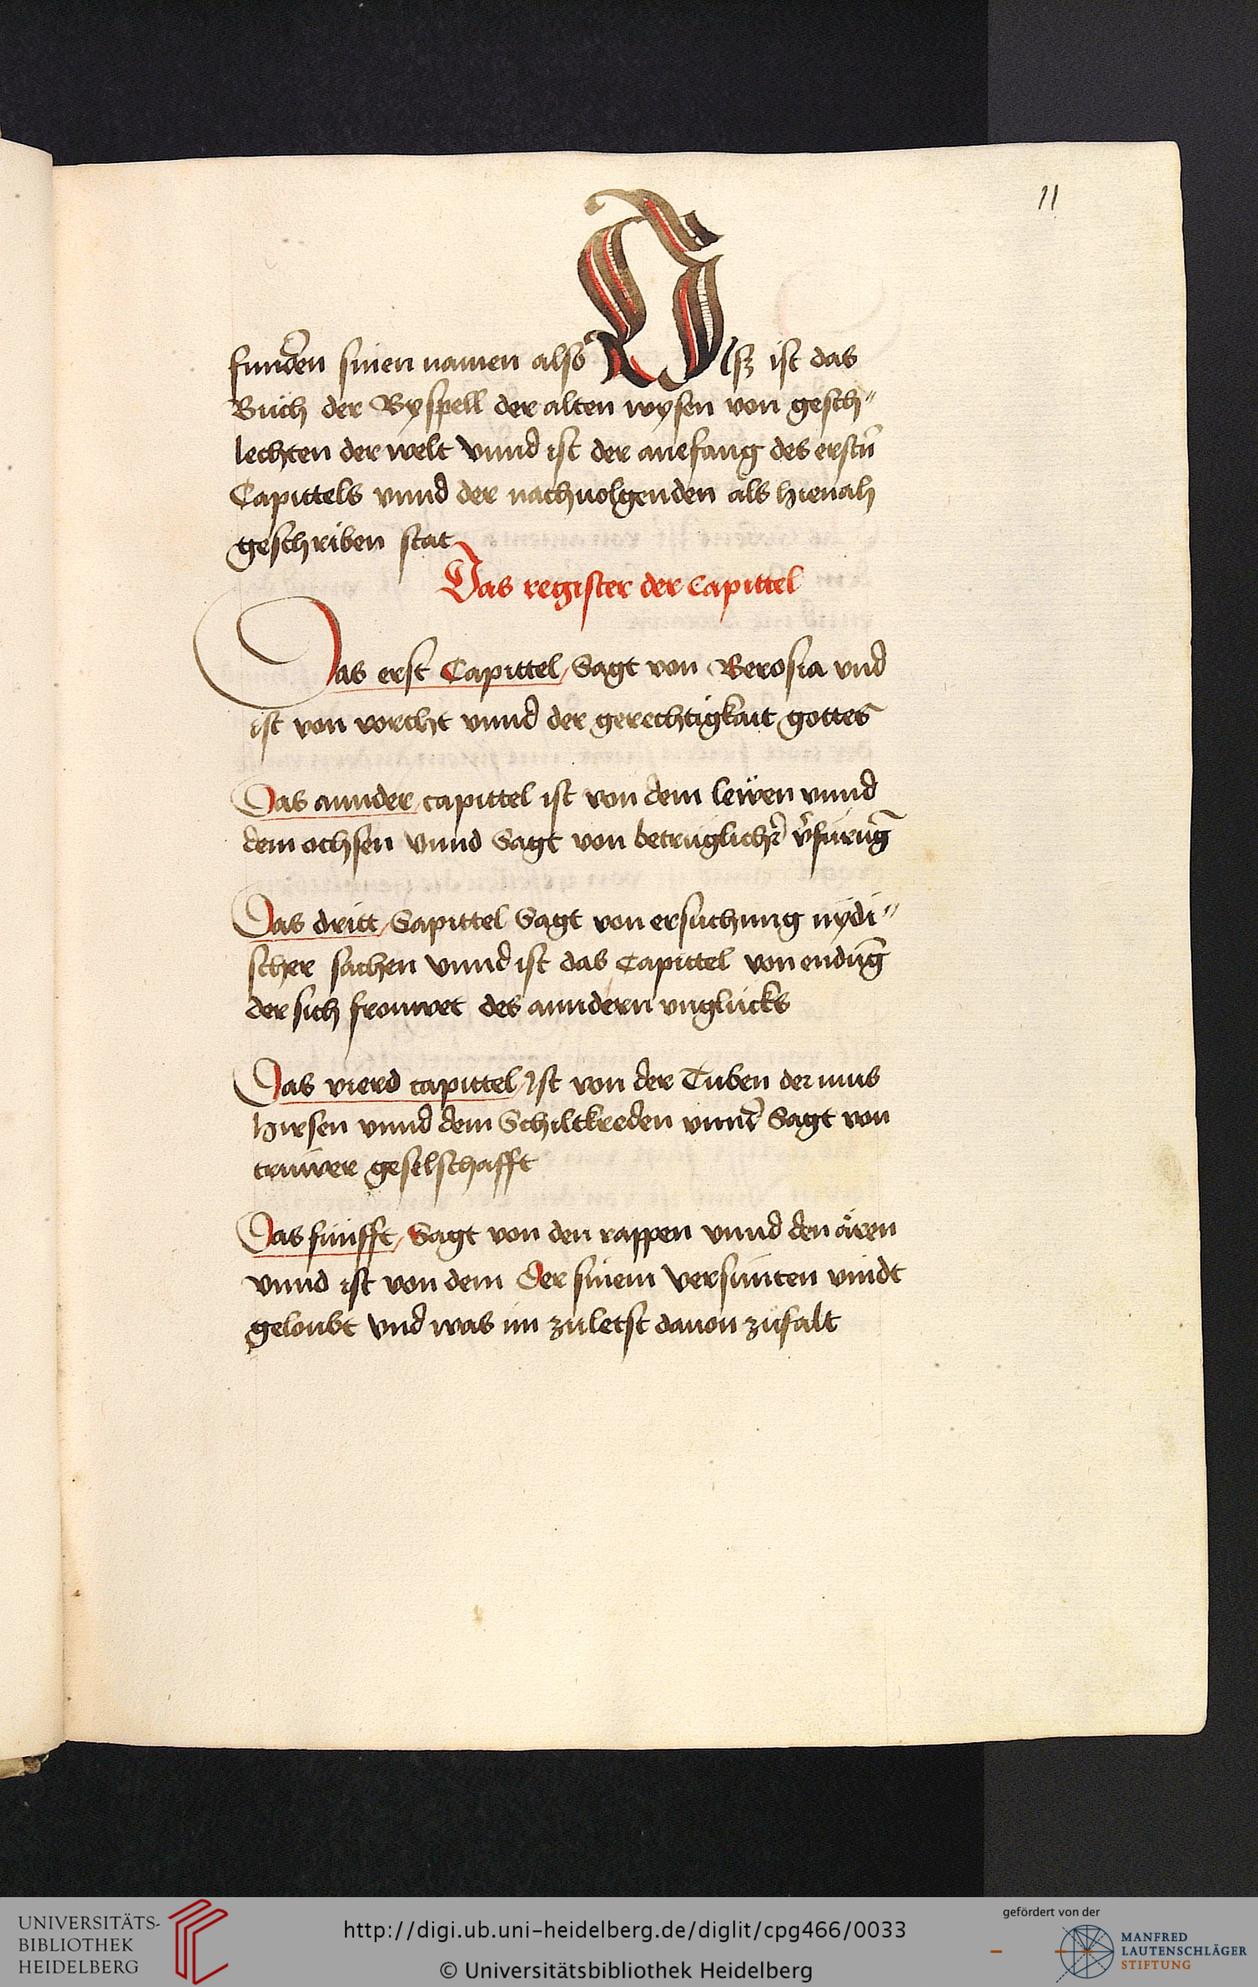 11
funden sinen namen also Diß ist das
Buch der Byspell der alten wysen von gesch„
lechten der welt vnnd ist der anefang des erstn̄
Capittels vnnd der nachuolgenden als hienah
geschriben stat
Das register der Capittel
Das erst Capittel / Sagt von Berosia vnd
ist von vorcht vnnd der gerechtigkait gottes
Das annder / capittel ist von dem lewen vnnd
dem ochsen vnnd Sagt von betruglichr̄ v̄furūg
Das dritt / Capittel Sagt von ersuchung nydi„
scher sachen vnnd ist das Capittel von endūg
der sich frouwet des anndern vnglucks
Das vierd capittel / Ist von der Tuben der mus
hirsen vnnd dem Schiltkreden vnnd Sagt von
truwer geselschafft
Das funfft / Sagt von den rappen vnnd den aren
vnnd ist von dem Der sinem versunten vindt
geloubt vnd was im zuletst dauon zufalt
UNIVERSITÄTS-
BIBLIOTHEK
HEIDELBERG
http://digi.ub.uni-heidelberg.de/diglit/cpg466/0033
© Universitätsbibliothek Heidelberg
gefördert von der
MANFRED
LAUTENSCHLÄGER
STIFTUNG